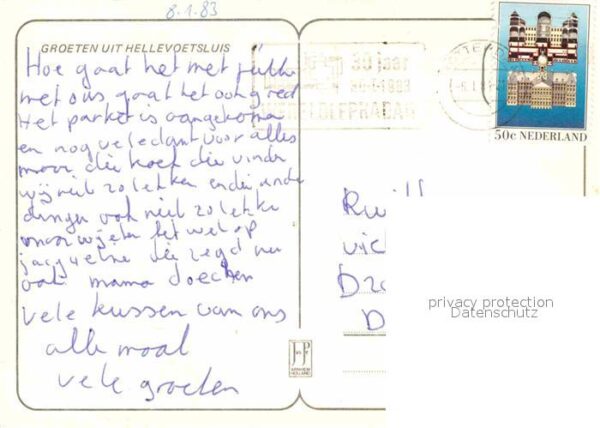 8.1.83
GROETEN UIT HELLEVOETSLUIS
Hoe gaat het met jullie
met ons gaat het ook goed
Het pakket is aangekomen
en nog veledank voor alles
maar die koek die vinden
wij niet zo lekker en die ande
dingen ook niet zo lekke
maar wij eten het wel op
jacqueline die zegd nu
ook mama doechen
Vele kussen van ons
alle maal
vele groeten
30 jaar
1983
50c NEDERLAND
privacy protection
Datenschutz
JosPé
ARNHEM
HOLLAND